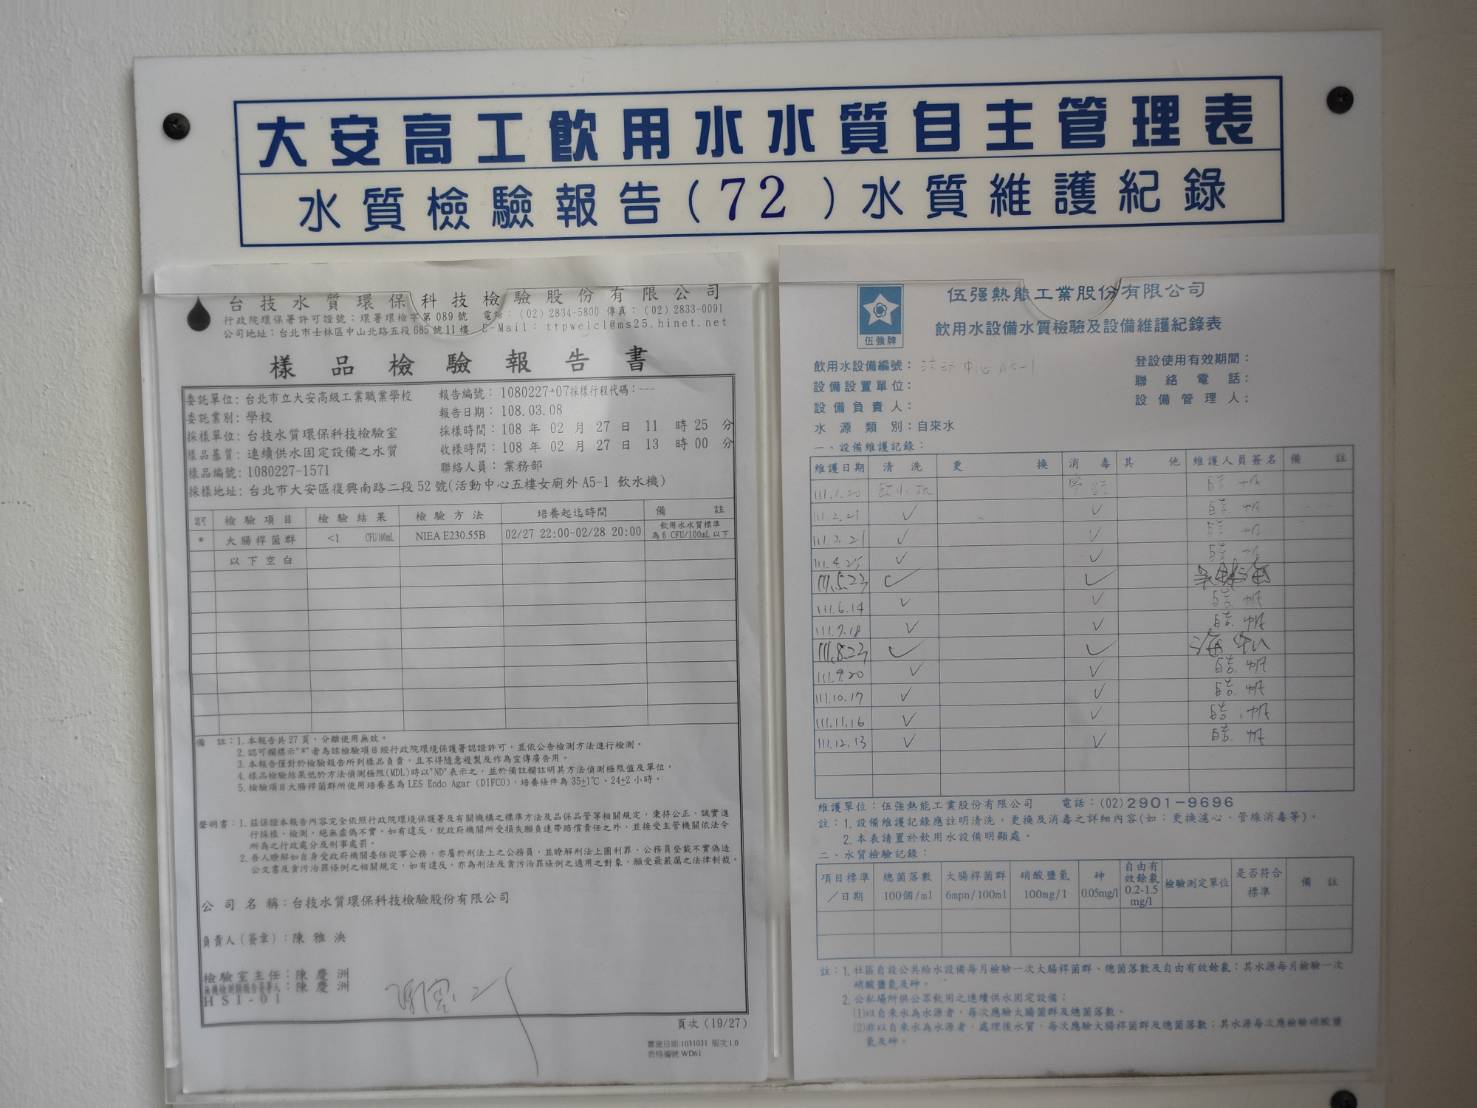 大安高工飲用水水質自主管理表
水質檢驗報告(72)水質維護紀錄
台技水質環保科技檢驗股份有限公司
行政院環保署許可證號：環署環檢字第089號 電話：(02) 2834-5800 傳真：(02) 2833-0091
公司地址：台北市士林區中山北路五段685號11樓 E-Mail：ttpwelcl@ms25.hinet.net
樣品檢驗報告書
委託單位：台北市立大安高級工業職業學校 報告編號：1080227+07採樣行程代碼：---
委託業別：學校 報告日期：108.03.08
採樣單位：台技水質環保科技檢驗室 採樣時間：108 年 02 月 27 日 11 時 25 分
樣品基質：連續供水固定設備之水質 收樣時間：108 年 02 月 27 日 13 時 00 分
樣品編號：1080227-1571 聯絡人員：業務部
採樣地址：台北市大安區復興南路二段52號(活動中心五樓女廁外A5-1 飲水機)
認可 檢驗項目 檢驗結果 檢驗方法 培養起迄時間 備註
* 大腸桿菌群 <1 CFU/100mL NIEA E230.55B 02/27 22:00-02/28 20:00 飲用水水質標準為6 CFU/100mL以下
以下空白
備 註：1.本報告共27頁，分離使用無效。
2.認可欄標示"*"者為該檢驗項目經行政院環境保護署認證許可，並依公告檢測方法進行檢測。
3.本報告僅對於檢驗報告所列樣品負責，且不得隨意複製及作為宣傳廣告用。
4.樣品檢驗結果低於方法偵測極限(MDL)時以"ND"表示之，並於備註欄註明其方法偵測極限值及單位。
5.檢驗項目大腸桿菌群所使用培養基為LES Endo Agar (DIFCO)，培養條件為35±1℃、24±2小時。
聲明書：1.茲保證本報告內容完全依照行政院環境保護署及有關機構之標準方法及品保品管等相關規定，秉持公正、誠實進
行採樣、檢測，絕無虛偽不實，如有違反，就政府機關所受損失願負連帶賠償責任之外，並接受主管機關依法令
所為之行政處分及刑事處罰。
2.吾人瞭解如自身受政府機關委任從事公務，亦屬於刑法上之公務員，並瞭解刑法上圖利罪、公務員登載不實偽造
公文書及貪污治罪條例之相關規定，如有違反，亦為刑法及貪污治罪條例之適用之對象，願受最嚴厲之法律制裁。
公司名稱：台技水質環保科技檢驗股份有限公司
負責人(簽章)：陳雅泱
檢驗室主任：陳慶洲
無機檢測類報告簽署人：陳慶洲
HSI-01
頁次 (19/27)
實施日期:1031031 版次1.0
表格編號 WD61
伍強牌
伍强熱能工業股份有限公司
飲用水設備水質檢驗及設備維護紀錄表
飲用水設備編號：活動中心 A5-1 登設使用有效期間：
設備設置單位： 聯絡電話：
設備負責人： 設備管理人：
水源類別：自來水
一、設備維護記錄：
維護日期 清洗 更換 消毒 其他 維護人員簽名 備註
111.2.21 ✓ ✓
111.3.21 ✓ ✓
111.4.25 ✓ ✓
111.5.23 ✓ ✓
111.6.14 ✓ ✓
111.7.18 ✓ ✓
111.8.23 ✓ ✓
111.9.20 ✓ ✓
111.10.17 ✓ ✓
111.11.16 ✓ ✓
111.12.13 ✓ ✓
維護單位：伍強熱能工業股份有限公司 電話：(02)2901-9696
註：1.設備維護記錄應註明清洗，更換及消毒之詳細內容(如：更換濾心、管線消毒等)。
2.本表請置於飲用水設備明顯處。
二、水質檢驗記錄：
項目標準／日期 總菌落數 100個/ml 大腸桿菌群 6mpn/100ml 硝酸鹽氮 100mg/l 砷 0.05mg/l 自由有效餘氯 0.2-1.5 mg/l 檢驗測定單位 是否符合標準 備註
註：1.社區自設公共給水設備每月檢驗一次大腸桿菌群、總菌落數及自由有效餘氯；其水源每月檢驗一次
硝酸鹽氮及砷。
2.公私場所供公眾飲用之連續供水固定設備：
(1)以自來水為水源者，每次應驗大腸菌群及總菌落數。
(2)非以自來水為水源者，處理後水質，每次應驗大腸桿菌群及總菌落數；其水源每次應檢驗硝酸鹽
氮及砷。